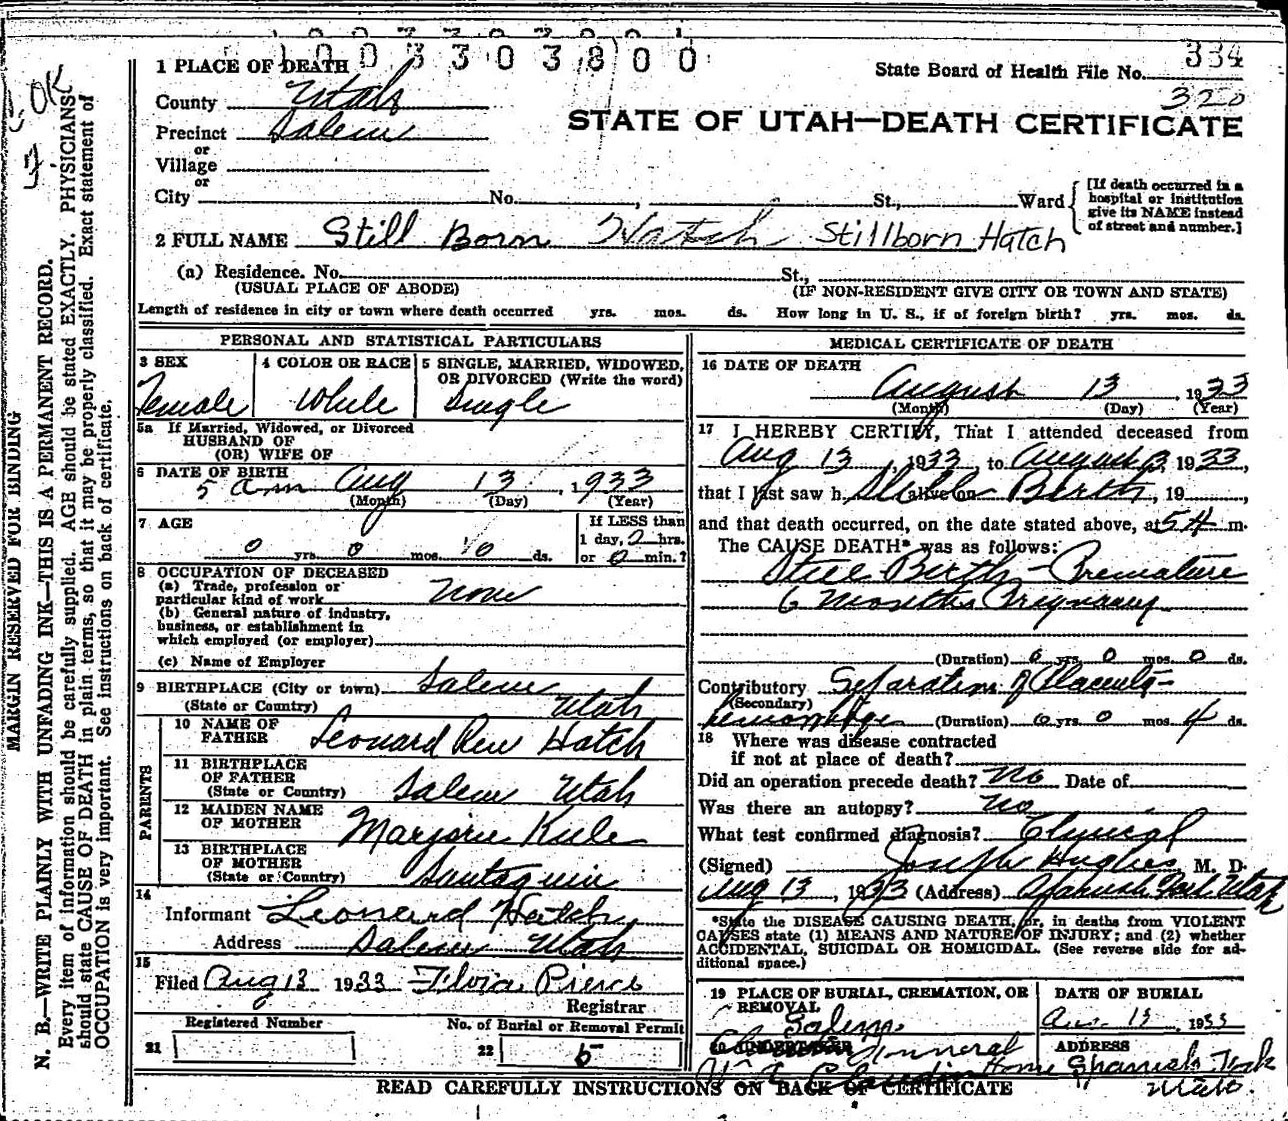 1 0 0 3 3 0 3 8 0 0
1 PLACE OF DEATH
State Board of Health File No. 334
320
County Utah
STATE OF UTAH—DEATH CERTIFICATE
Precinct Salem
or
Village
or
City No. , St., Ward
[If death occurred in a
hospital or institution
give its NAME instead
of street and number.]
2 FULL NAME Still Born Hatch Stillborn Hatch
(a) Residence. No. St.,
(USUAL PLACE OF ABODE) (IF NON-RESIDENT GIVE CITY OR TOWN AND STATE)
Length of residence in city or town where death occurred yrs. mos. ds. How long in U. S., if of foreign birth? yrs. mos. ds.
PERSONAL AND STATISTICAL PARTICULARS
3 SEX 4 COLOR OR RACE 5 SINGLE, MARRIED, WIDOWED,
OR DIVORCED (Write the word)
Female White Single
5a If Married, Widowed, or Divorced
HUSBAND OF
(OR) WIFE OF
6 DATE OF BIRTH
5 am Aug 13, 1933
(Month) (Day) (Year)
7 AGE If LESS than
1 day, 0 hrs.
0 yrs. 0 mos. 0 ds. or 0 min.?
8 OCCUPATION OF DECEASED
(a) Trade, profession or
particular kind of work None
(b) General nature of industry,
business, or establishment in
which employed (or employer)
(c) Name of Employer
9 BIRTHPLACE (City or town) Salem
(State or Country) Utah
PARENTS
10 NAME OF
FATHER Leonard Hatch
11 BIRTHPLACE
OF FATHER
(State or Country) Salem Utah
12 MAIDEN NAME
OF MOTHER Marjorie
13 BIRTHPLACE
OF MOTHER
(State or Country) Santaquin
14
Informant Leonard Hatch
Address Salem Utah
15
Filed Aug 13 1933 Pierce
Registrar
Registered Number No. of Burial or Removal Permit
21 22 5
MEDICAL CERTIFICATE OF DEATH
16 DATE OF DEATH
August 13, 1933
(Month) (Day) (Year)
17 I HEREBY CERTIFY, That I attended deceased from
Aug 13, 1933 to August 13, 1933,
that I last saw h alive on Still Birth, 19 ,
and that death occurred, on the date stated above, at 5 A m.
The CAUSE DEATH* was as follows:
Still Birth - Premature
6 Months Pregnancy
(Duration) 0 yrs. 0 mos. 0 ds.
Contributory Separation of Placenta-
(Secondary)
hemorrhage (Duration) 0 yrs 0 mos. 4 ds.
18 Where was disease contracted
if not at place of death?
Did an operation precede death? No Date of
Was there an autopsy? no
What test confirmed diagnosis? Clinical
(Signed) Joseph Hughes, M. D.
Aug 13, 1933 (Address) Spanish Fork Utah
*State the DISEASE CAUSING DEATH, or, in deaths from VIOLENT
CAUSES state (1) MEANS AND NATURE OF INJURY; and (2) whether
ACCIDENTAL, SUICIDAL OR HOMICIDAL. (See reverse side for ad-
ditional space.)
19 PLACE OF BURIAL, CREMATION, OR
REMOVAL
Salem
DATE OF BURIAL
Aug. 13, 1933
20 UNDERTAKER
Funeral
Home
ADDRESS
Spanish Fork
Utah.
READ CAREFULLY INSTRUCTIONS ON BACK OF CERTIFICATE
OK
MARGIN RESERVED FOR BINDING
N. B.—WRITE PLAINLY WITH UNFADING INK—THIS IS A PERMANENT RECORD.
Every item of information should be carefully supplied. AGE should be stated EXACTLY. PHYSICIANS
should state CAUSE OF DEATH in plain terms, so that it may be properly classified. Exact statement of
OCCUPATION is very important. See instructions on back of certificate.